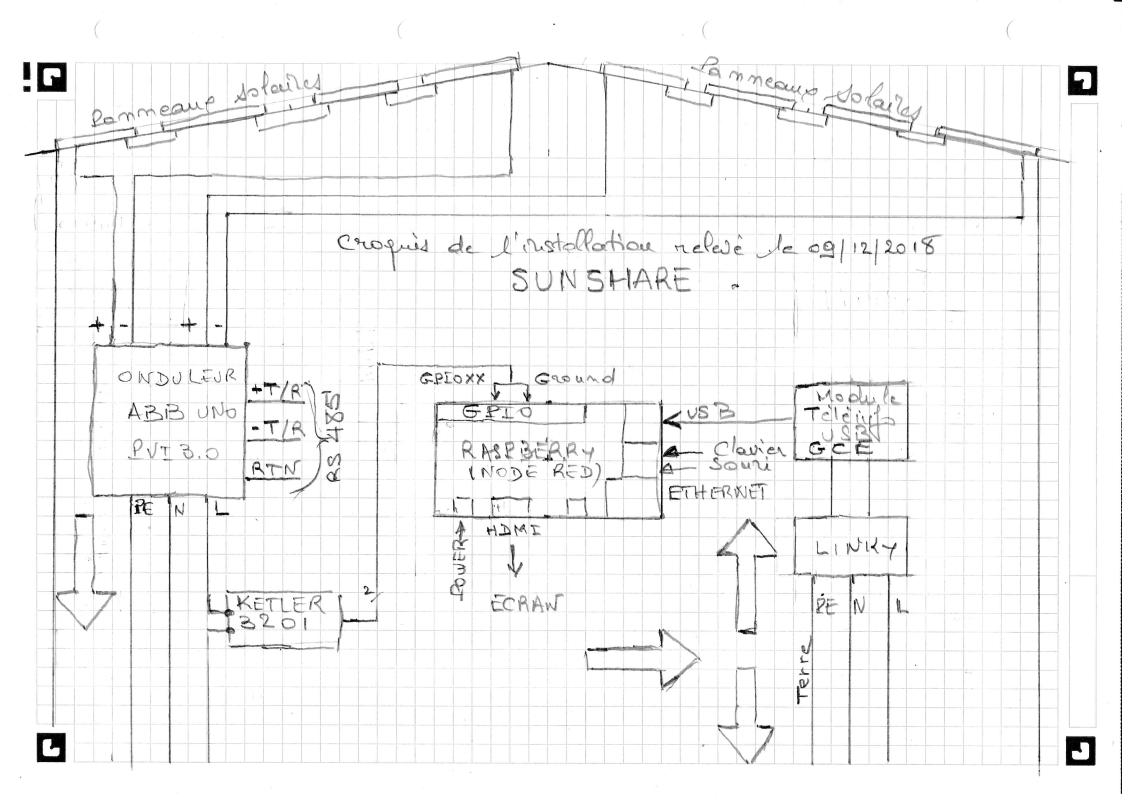 Panneaux solaires
Panneaux solaires
Croquis de l'installation relevé le 09/12/2018
SUNSHARE .
+ - + -
ONDULEUR
ABB UNO
PVI 3.0
+T/R
-T/R
RTN
RS 485
PE N L
GPIOXX Ground
GPIO
RASPBERRY
(NODE RED)
USB
Clavier
Souri
ETHERNET
POWER
HDMI
ECRAN
Module
Téléinfo
USB
GCE
LINKY
PE N L
Terre
KETLER
3201
2